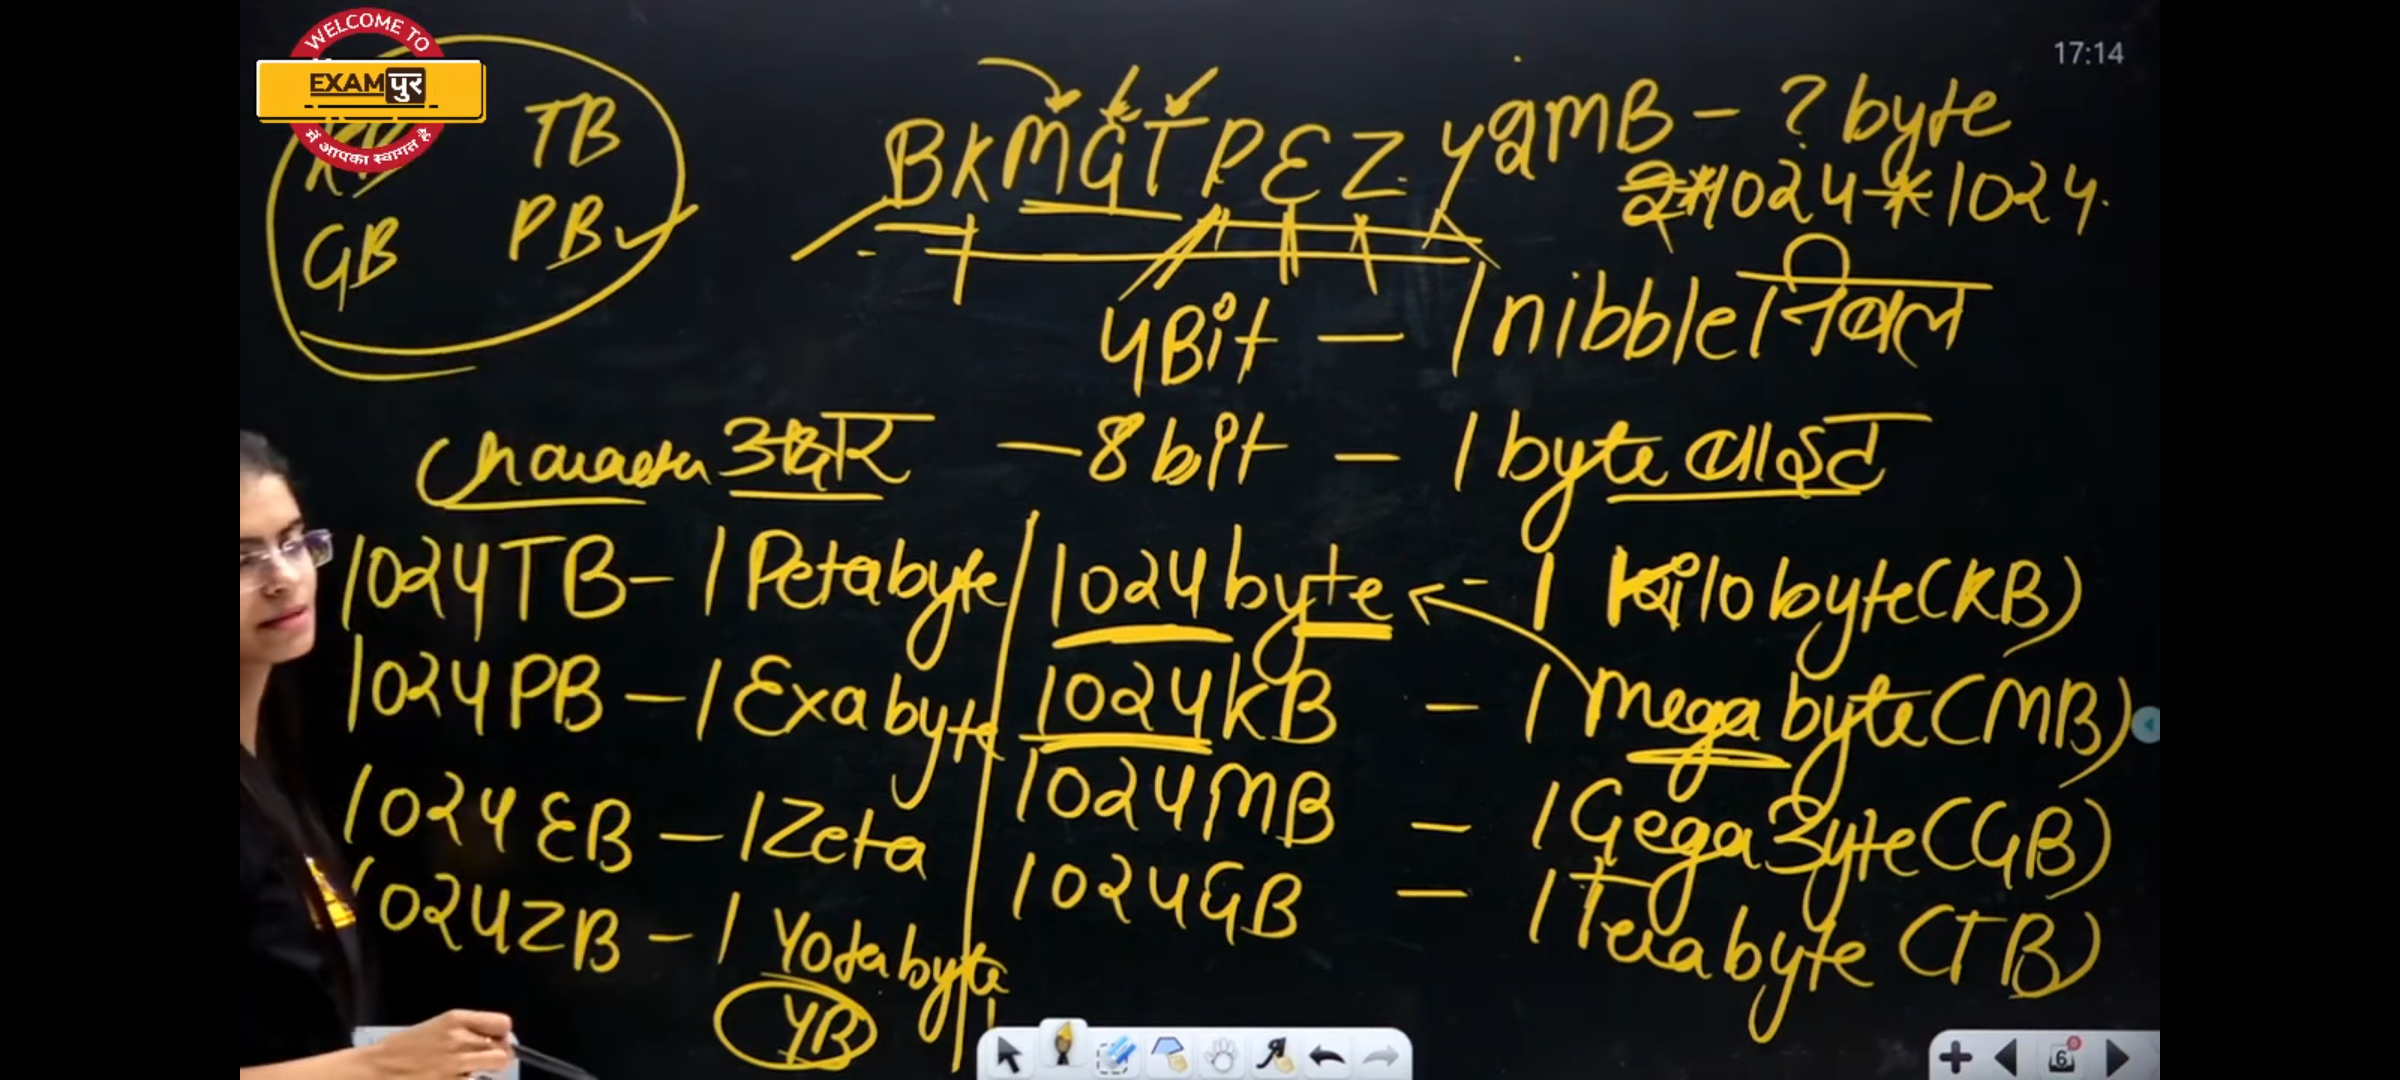 WELCOME TO
EXAMपुर
में आपका स्वागत है
17:14
TB
GB PB
BKMGTPEZY
2MB - ? byte
2*1024*1024.
4Bit - 1 nibble / निबल
Character अक्षर - 8 bit - 1 byte बाइट
1024TB - 1 Petabyte
1024PB - 1 Exabyte
1024EB - 1 Zeta
1024ZB - 1 Yotabyte
YB
1024 byte - 1 Kilobyte (KB)
1024KB - 1 Megabyte (MB)
1024MB - 1 GegaByte (GB)
1024GB - 1 Terabyte (TB)
6